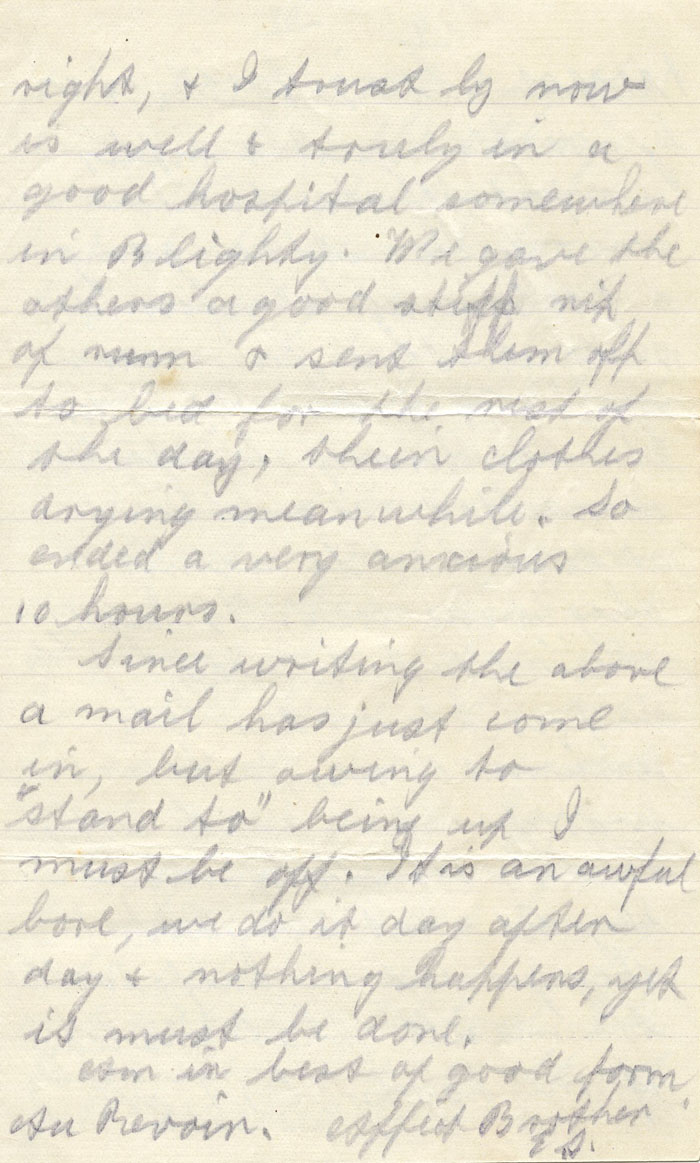 right, & I trust by now
is well & truly in a
good hospital somewhere
in Blighty. We gave the
others a good stiff nip
of rum & sent them off
to bed for the rest of
the day, their clothes
drying meanwhile. So
ended a very anxious
10 hours.
Since writing the above
a mail has just come
in, but owing to
"stand to" being up I
must be off. It is an awful
bore, we do it day after
day & nothing happens, yet
it must be done.
Am in best of good form.
Au Revoir. Affect Brother